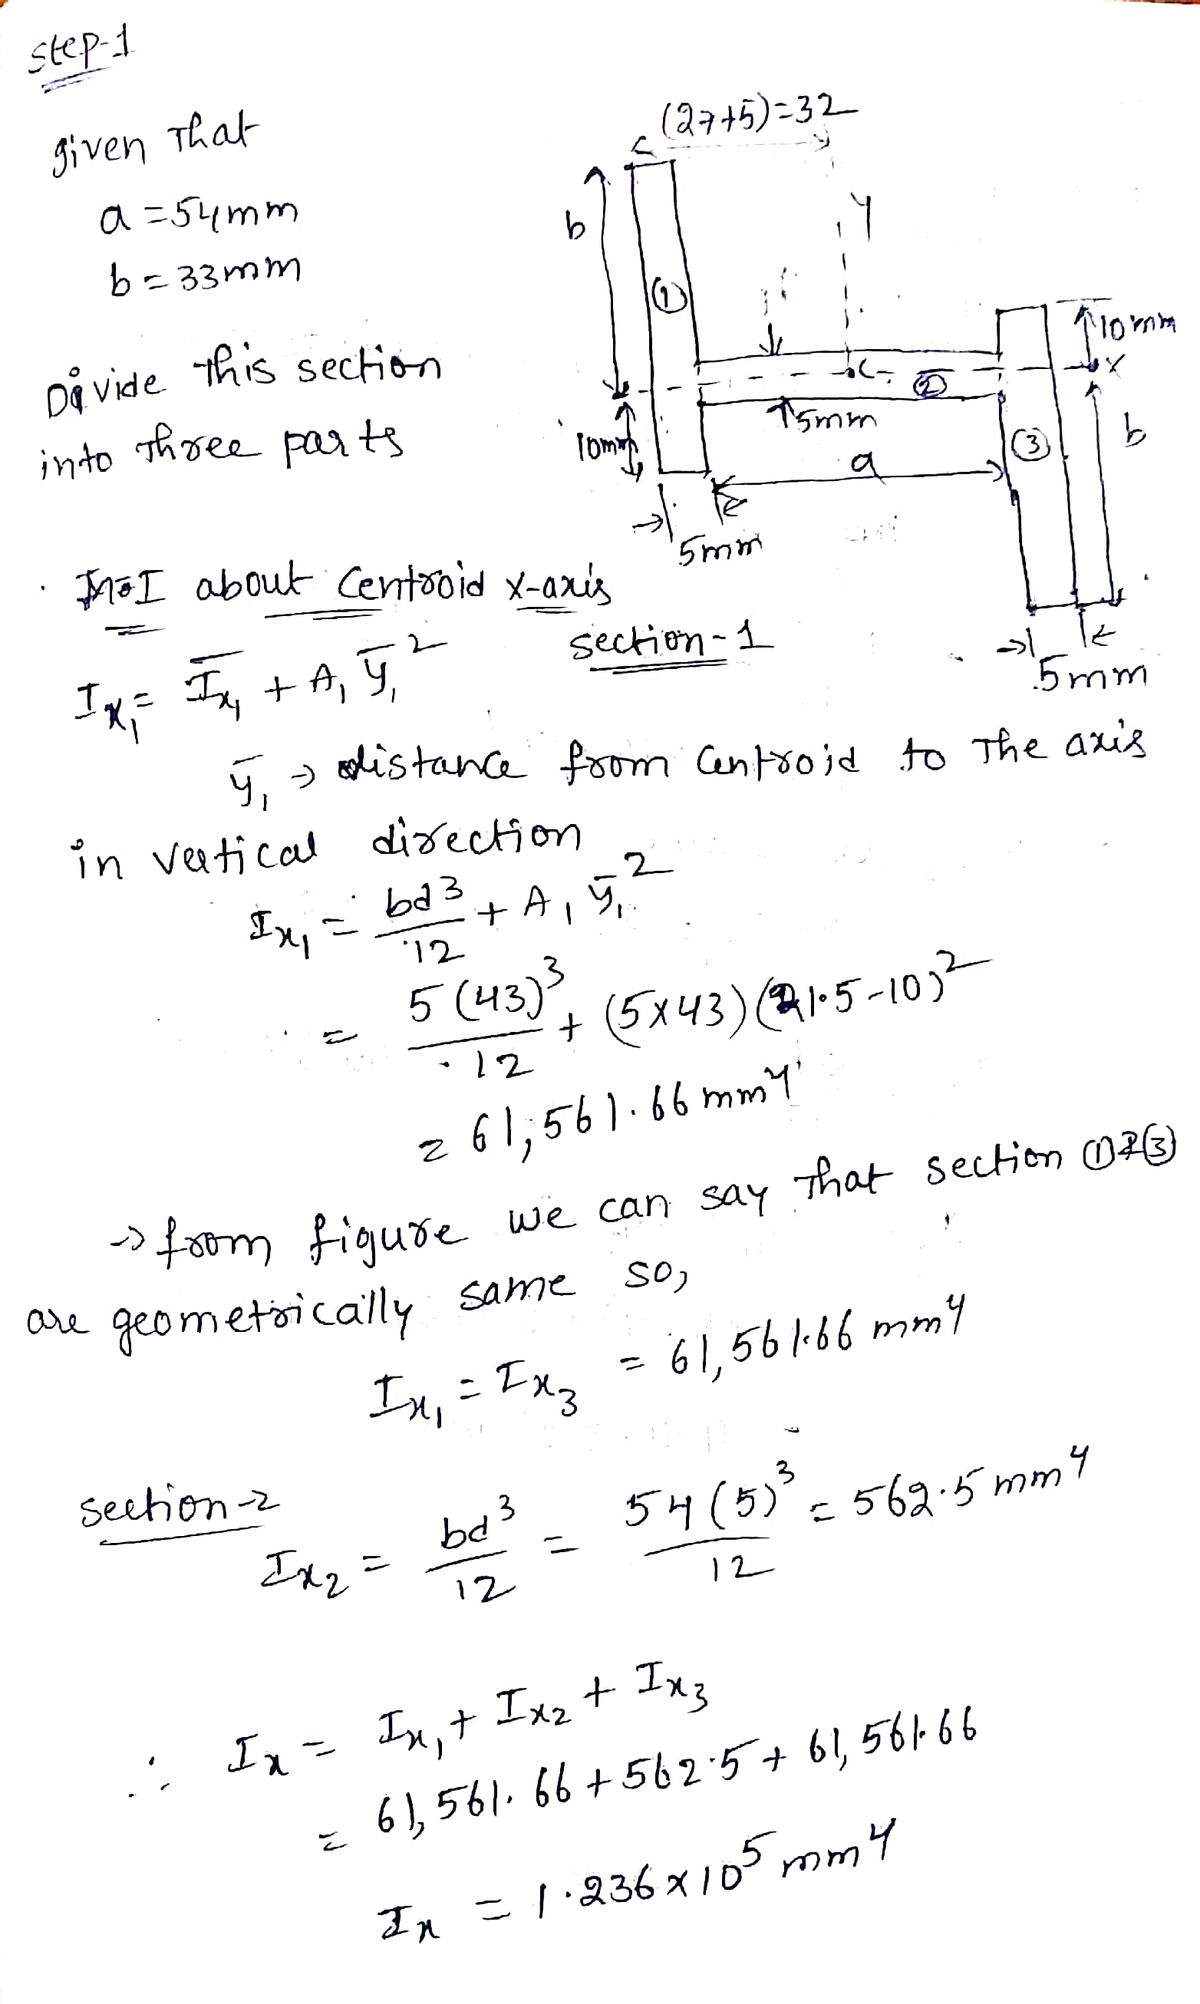 step-1
(27+5)=32
given That
a =54mm
b = 33mm
b
Y
①
10mm
C
②
x
Divide This section
into Three parts
5mm
10mm
③
b
a
5mm
5mm
M.I about Centroid x-axis
section-1
Ix₁ = I̅x₁ + A₁ y̅₁²
y̅₁ → distance from Centroid to The axis
in vertical direction
Ix₁ = bd³/12 + A₁ y̅₁²
= 5(43)³/12 + (5x43)(21.5-10)²
= 61,561.66 mm⁴
→ from figure we can say That section ①&③
are geometrically same so,
Ix₁ = Ix₃ = 61,561.66 mm⁴
section-2
Ix₂ = bd³/12 = 54(5)³/12 = 562.5 mm⁴
∴ Ix = Ix₁ + Ix₂ + Ix₃
= 61,561.66 + 562.5 + 61,561.66
Ix = 1.236x10⁵ mm⁴